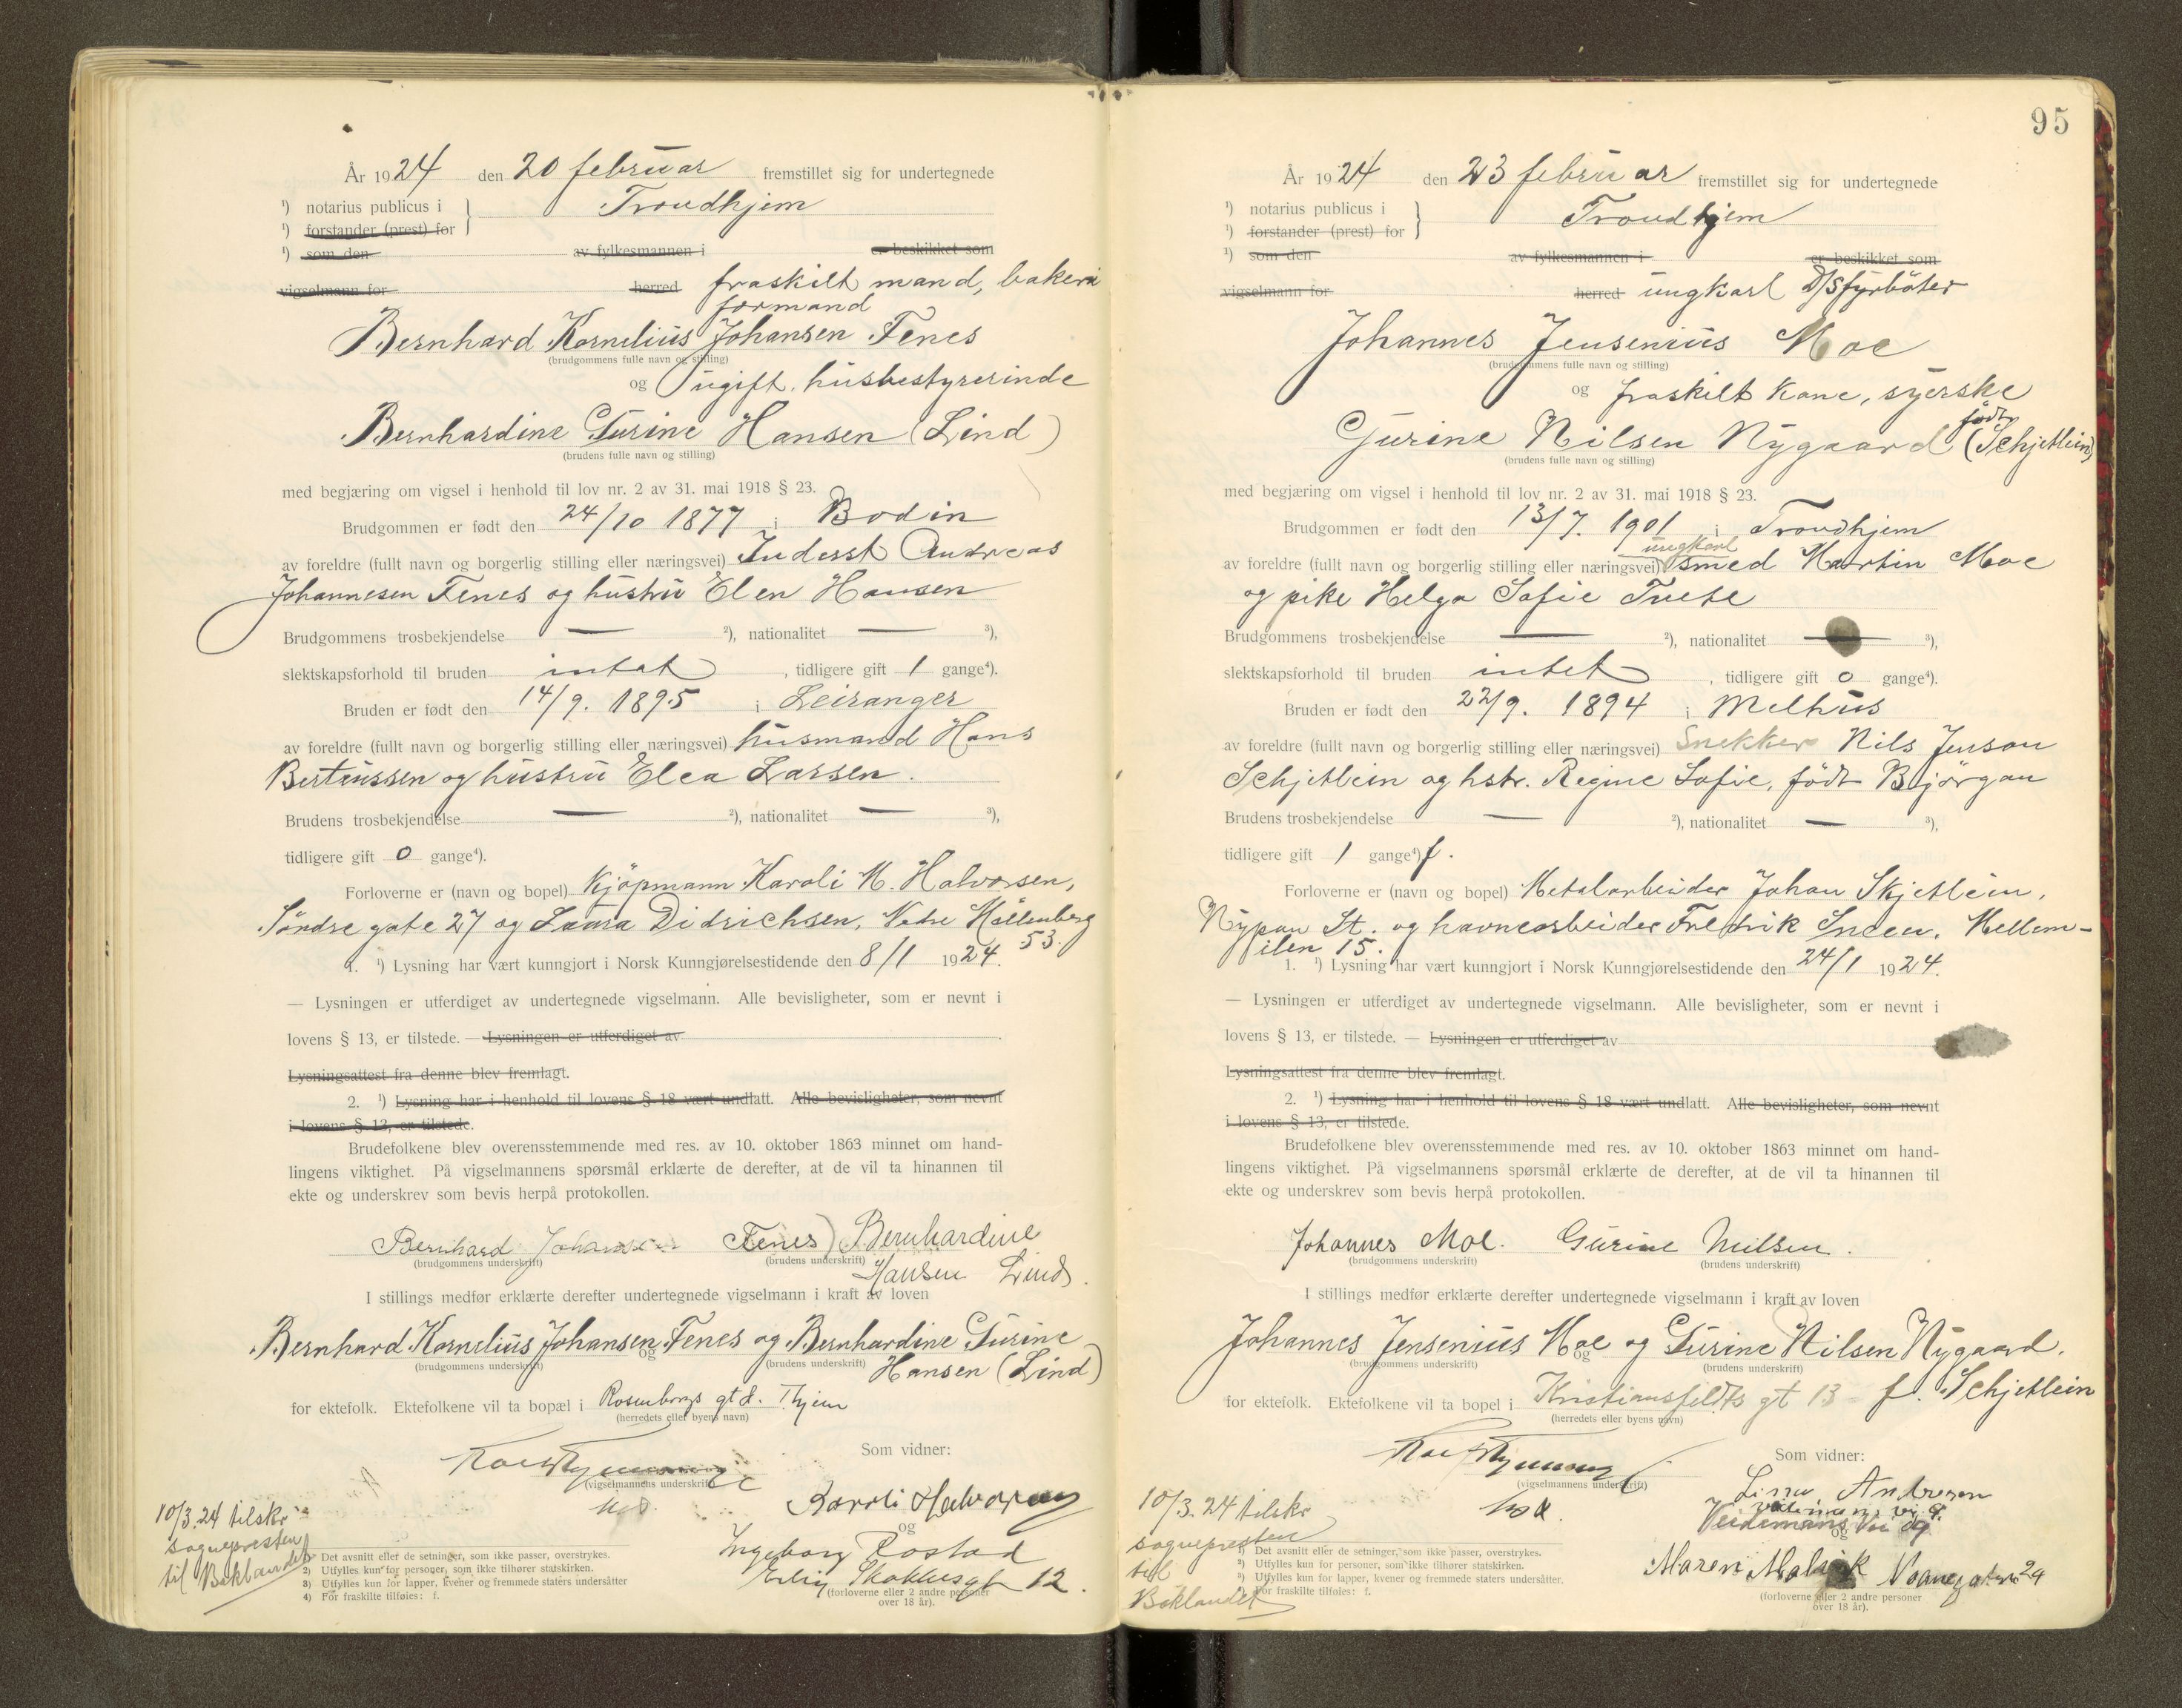 År 1924 den 20 februar fremstillet sig for undertegnede
¹) notarius publicus i } Trondhjem
¹) forstander (prest) for
¹) som den av fylkesmannen i er beskikket som
vigselmann for herred fraskilt mand, bakeri
formand
Bernhard Kornelius Johansen Fenes
(brudgommens fulle navn og stilling)
og ugift. husbestyrerinde
Bernhardine Gurine Hansen (Lind)
(brudens fulle navn og stilling)
med begjæring om vigsel i henhold til lov nr. 2 av 31. mai 1918 § 23.
Brudgommen er født den 24/10 1877 i Bodin
av foreldre (fullt navn og borgerlig stilling eller næringsvei) Inderst Andreas
Johannesen Fenes og hustru Elen Hansen
Brudgommens trosbekjendelse — ²), nationalitet — ³),
slektskapsforhold til bruden intet , tidligere gift 1 gange⁴).
Bruden er født den 14/9. 1895 i Leiranger
av foreldre (fullt navn og borgerlig stilling eller næringsvei) husmand Hans
Bertnssen og hustru Elea Larsen.
Brudens trosbekjendelse — ²), nationalitet — ³),
tidligere gift 0 gange⁴).
Forloverne er (navn og bopel) Kjöpmann Karoli M. Halvorsen,
Söndre gate 27 og Laura Didrichsen, Nedre Möllenberg
53.
1. ¹) Lysning har vært kunngjort i Norsk Kunngjørelsestidende den 8/1 1924.
— Lysningen er utferdiget av undertegnede vigselmann. Alle bevisligheter, som er nevnt i
lovens § 13, er tilstede. — Lysningen er utferdiget av .
Lysningsattest fra denne blev fremlagt.
2. ¹) Lysning har i henhold til lovens § 18 vært undlatt. Alle bevisligheter, som nevnt
i lovens § 13, er tilstede.
Brudefolkene blev overensstemmende med res. av 10. oktober 1863 minnet om hand-
lingens viktighet. På vigselmannens spørsmål erklærte de derefter, at de vil ta hinannen til
ekte og underskrev som bevis herpå protokollen.
Bernhard Johansen Fenes) Bernhardine
(brudgommens underskrift) (brudens underskrift)
Hansen Lind.
I stillings medfør erklærte derefter undertegnede vigselmann i kraft av loven
Bernhard Kornelius Johansen Fenes og Bernhardine Gurine
(brudgommens underskrift) og (brudens underskrift)
Hansen (Lind)
for ektefolk. Ektefolkene vil ta bopæl i Rosenborgs gt 8. Thjem
(herredets eller byens navn)
Som vidner:
(vigselmannens underskrift)
Karoli Halvorsen
og
Ingeborg Rostad
Erling Skakkesgt 12.
(forloverne eller 2 andre personer
over 18 år).
10/3.24 tilskr
sognepresten
til Baklandet
¹) Det avsnitt eller de setninger, som ikke passer, overstrykes.
2) Utfylles kun for personer, som ikke tilhører statskirken.
3) Utfylles kun for lapper, kvener og fremmede staters undersåtter
4) For fraskilte tilføies: f.
95
År 1924 den 23 februar fremstillet sig for undertegnede
¹) notarius publicus i } Trondhjem
¹) forstander (prest) for
¹) som den av fylkesmannen i er beskikket som
vigselmann for herred ungkarl D/S fyrböter
Johannes Jensenius Moe
(brudgommens fulle navn og stilling)
og fraskilt kone, syerske
Gurine Nilsen Nygaard født (Schjetlein)
(brudens fulle navn og stilling)
med begjæring om vigsel i henhold til lov nr. 2 av 31. mai 1918 § 23.
Brudgommen er født den 13/7. 1901 i Trondhjem
ungkarl
av foreldre (fullt navn og borgerlig stilling eller næringsvei) smed Martin Moe
og pike Helga Sofie
Brudgommens trosbekjendelse — ²), nationalitet — ³),
slektskapsforhold til bruden intet , tidligere gift 0 gange⁴).
Bruden er født den 22/9. 1894 i Melhus
av foreldre (fullt navn og borgerlig stilling eller næringsvei) Snekker Nils Jenson
Schjetlein og hstr. Regine Sofie, født Björgan
Brudens trosbekjendelse — ²), nationalitet — ³),
tidligere gift 1 gange⁴) f.
Forloverne er (navn og bopel) Metalarbeider Johan Skjetlein,
Nypan St. og havnearbeider Fredrik Mellem-
ilen 15.
1. ¹) Lysning har vært kunngjort i Norsk Kunngjørelsestidende den 24/1 1924.
— Lysningen er utferdiget av undertegnede vigselmann. Alle bevisligheter, som er nevnt i
lovens § 13, er tilstede. — Lysningen er utferdiget av
Lysningsattest fra denne blev fremlagt.
2. ¹) Lysning har i henhold til lovens § 18 vært undlatt. Alle bevisligheter, som nevnt
i lovens § 13, er tilstede.
Brudefolkene blev overensstemmende med res. av 10. oktober 1863 minnet om hand-
lingens viktighet. På vigselmannens spørsmål erklærte de derefter, at de vil ta hinannen til
ekte og underskrev som bevis herpå protokollen.
Johannes Moe. Gurine Nielsen.
(brudgommens underskrift) (brudens underskrift)
I stillings medfør erklærte derefter undertegnede vigselmann i kraft av loven
Johannes Jensenius Moe og Gurine Nilsen Nygaard.
(brudgommens underskrift) og (brudens underskrift)
for ektefolk. Ektefolkene vil ta bopel i Kristiansfeldts gt 13 f. Schjetlein
(herredets eller byens navn)
Som vidner:
(vigselmannens underskrift)
Andresen
og
Maren Nonnegaten 24
(forloverne eller 2 andre personer
over 18 år).
10/3. 24 tilskr
sognepresten
til
Baklandet
¹) Det avsnitt eller de setninger, som ikke passer, overstrykes.
²) Utfylles kun for personer, som ikke tilhører statskirken.
³) Utfylles kun for lapper, kvener og fremmede staters undersåtter.
4) For fraskilte tilføies: f.